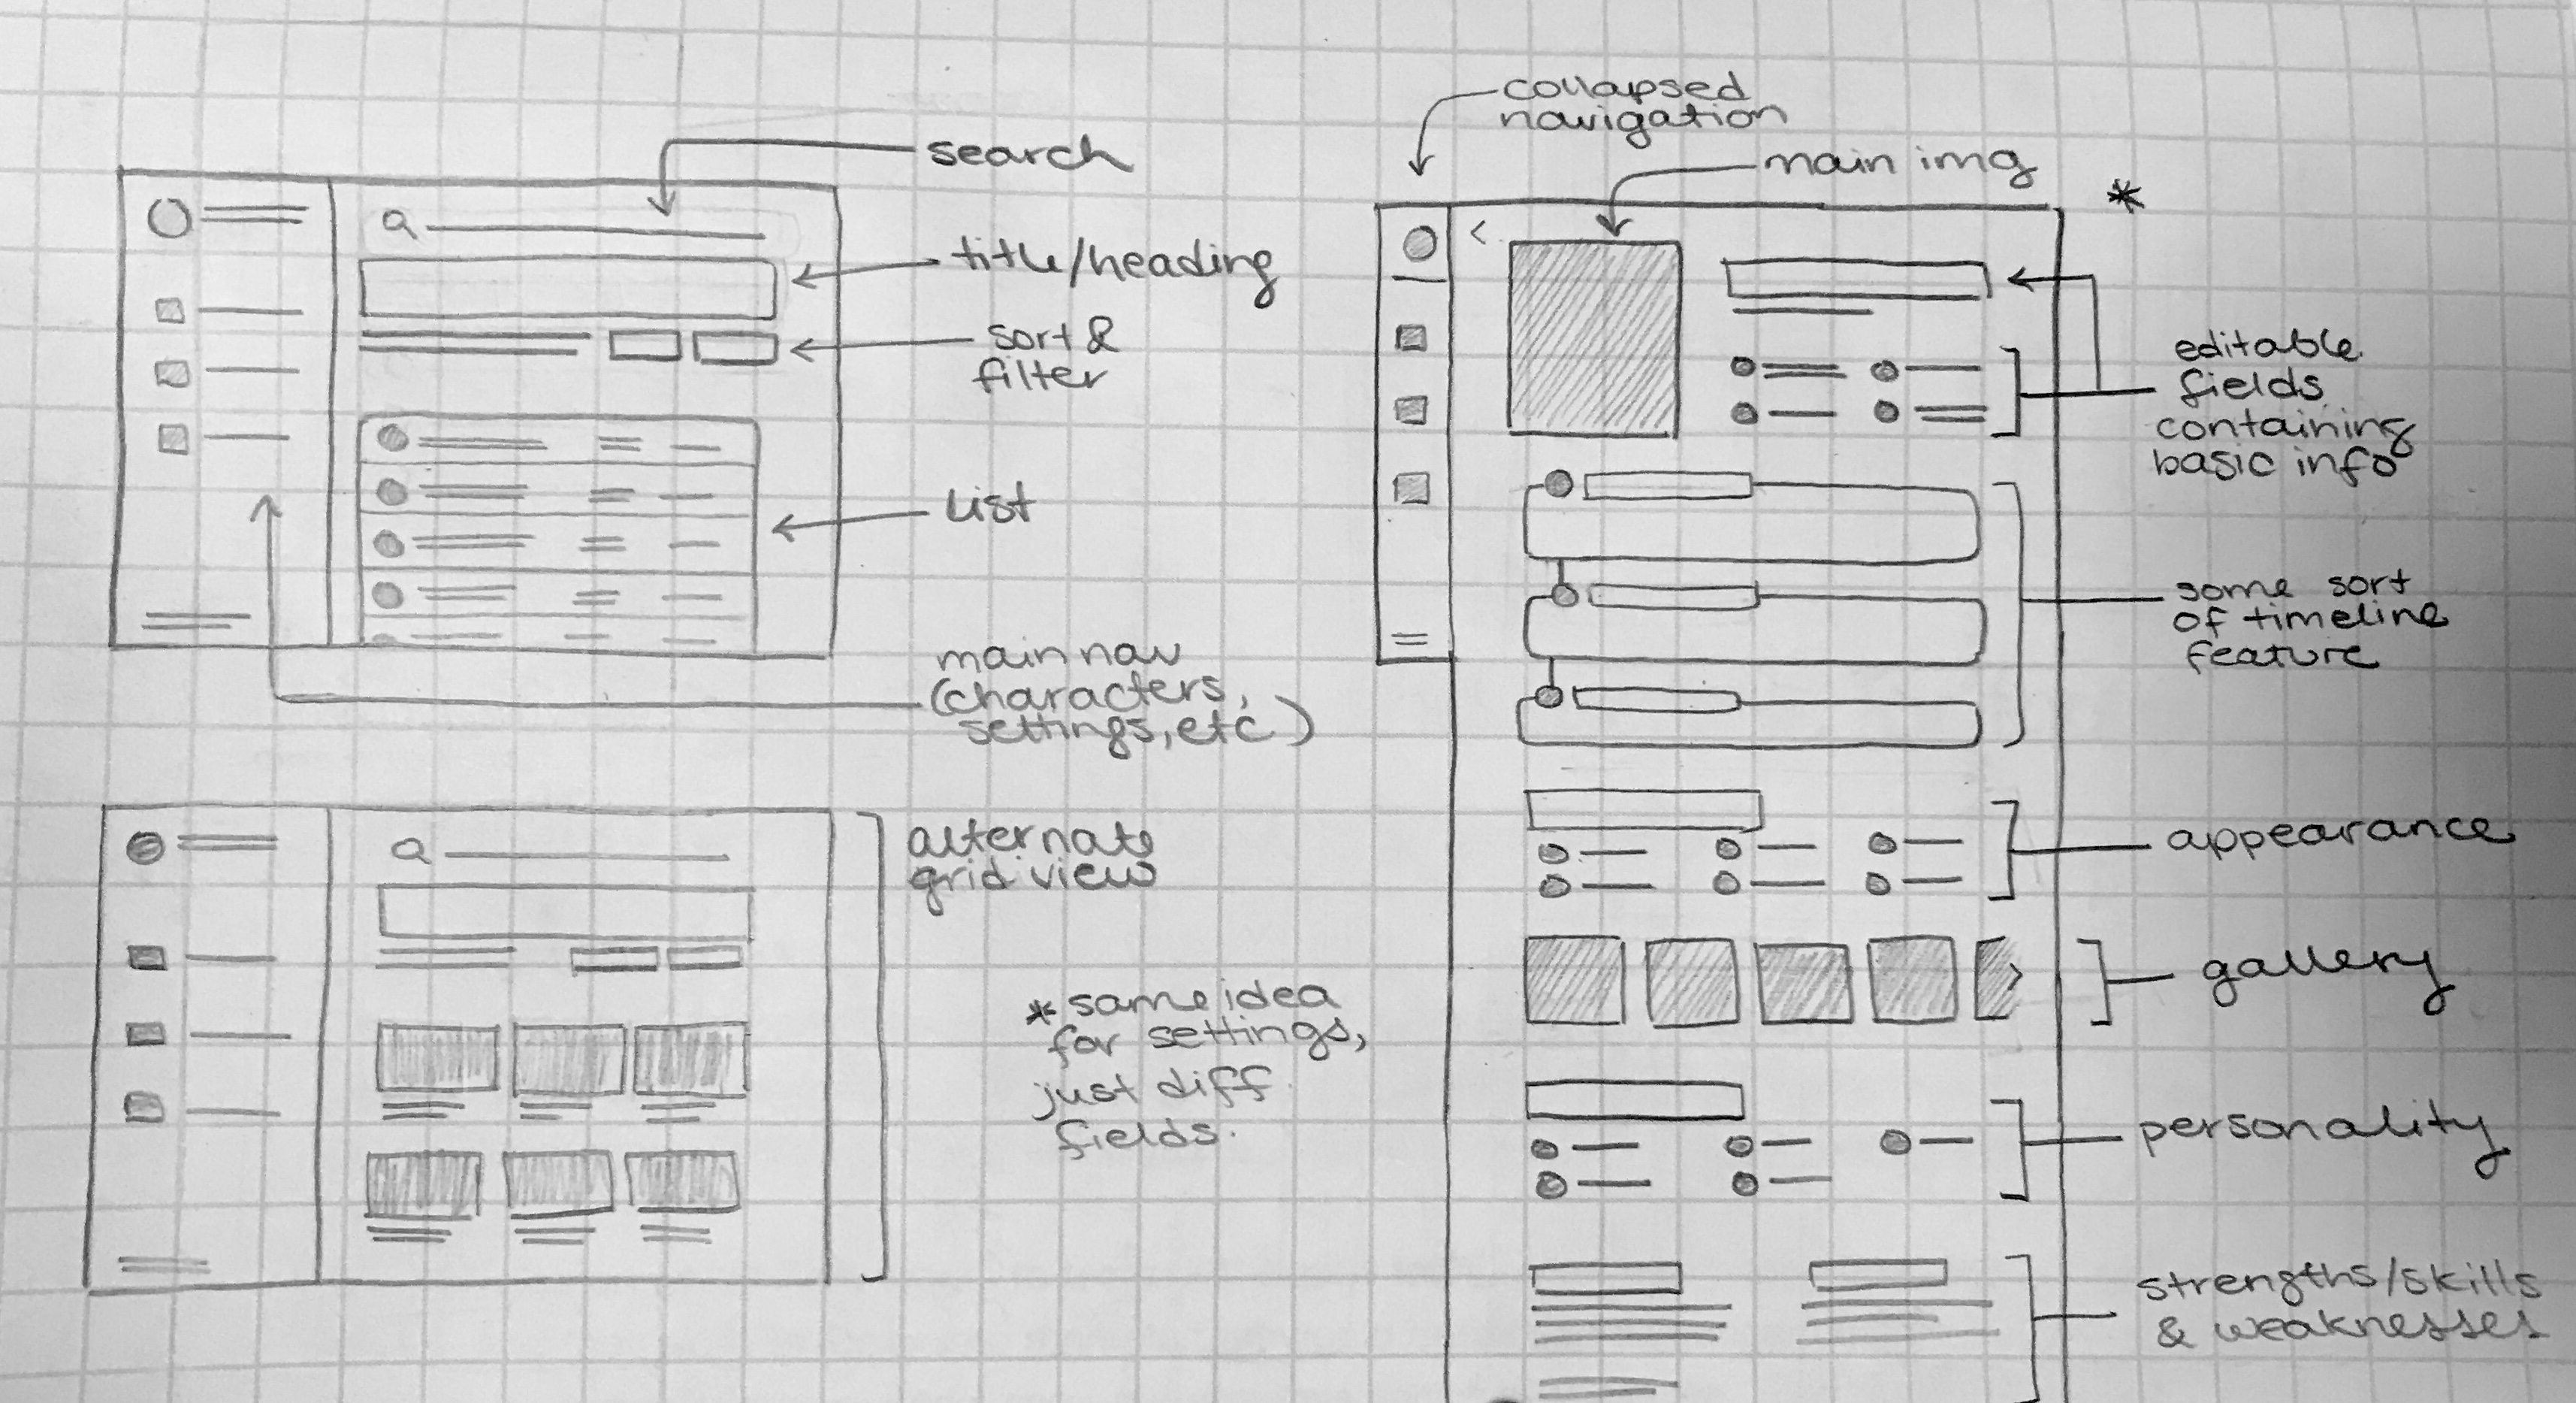 search
title/heading
sort &
filter
list
main nav
(characters,
settings, etc)
alternate
grid view
* same idea
for settings,
just diff
fields.
collapsed
navigation
main img
*
editable
fields
containing
basic info
some sort
of timeline
feature
appearance
gallery
personality
strengths/skills
& weaknesses